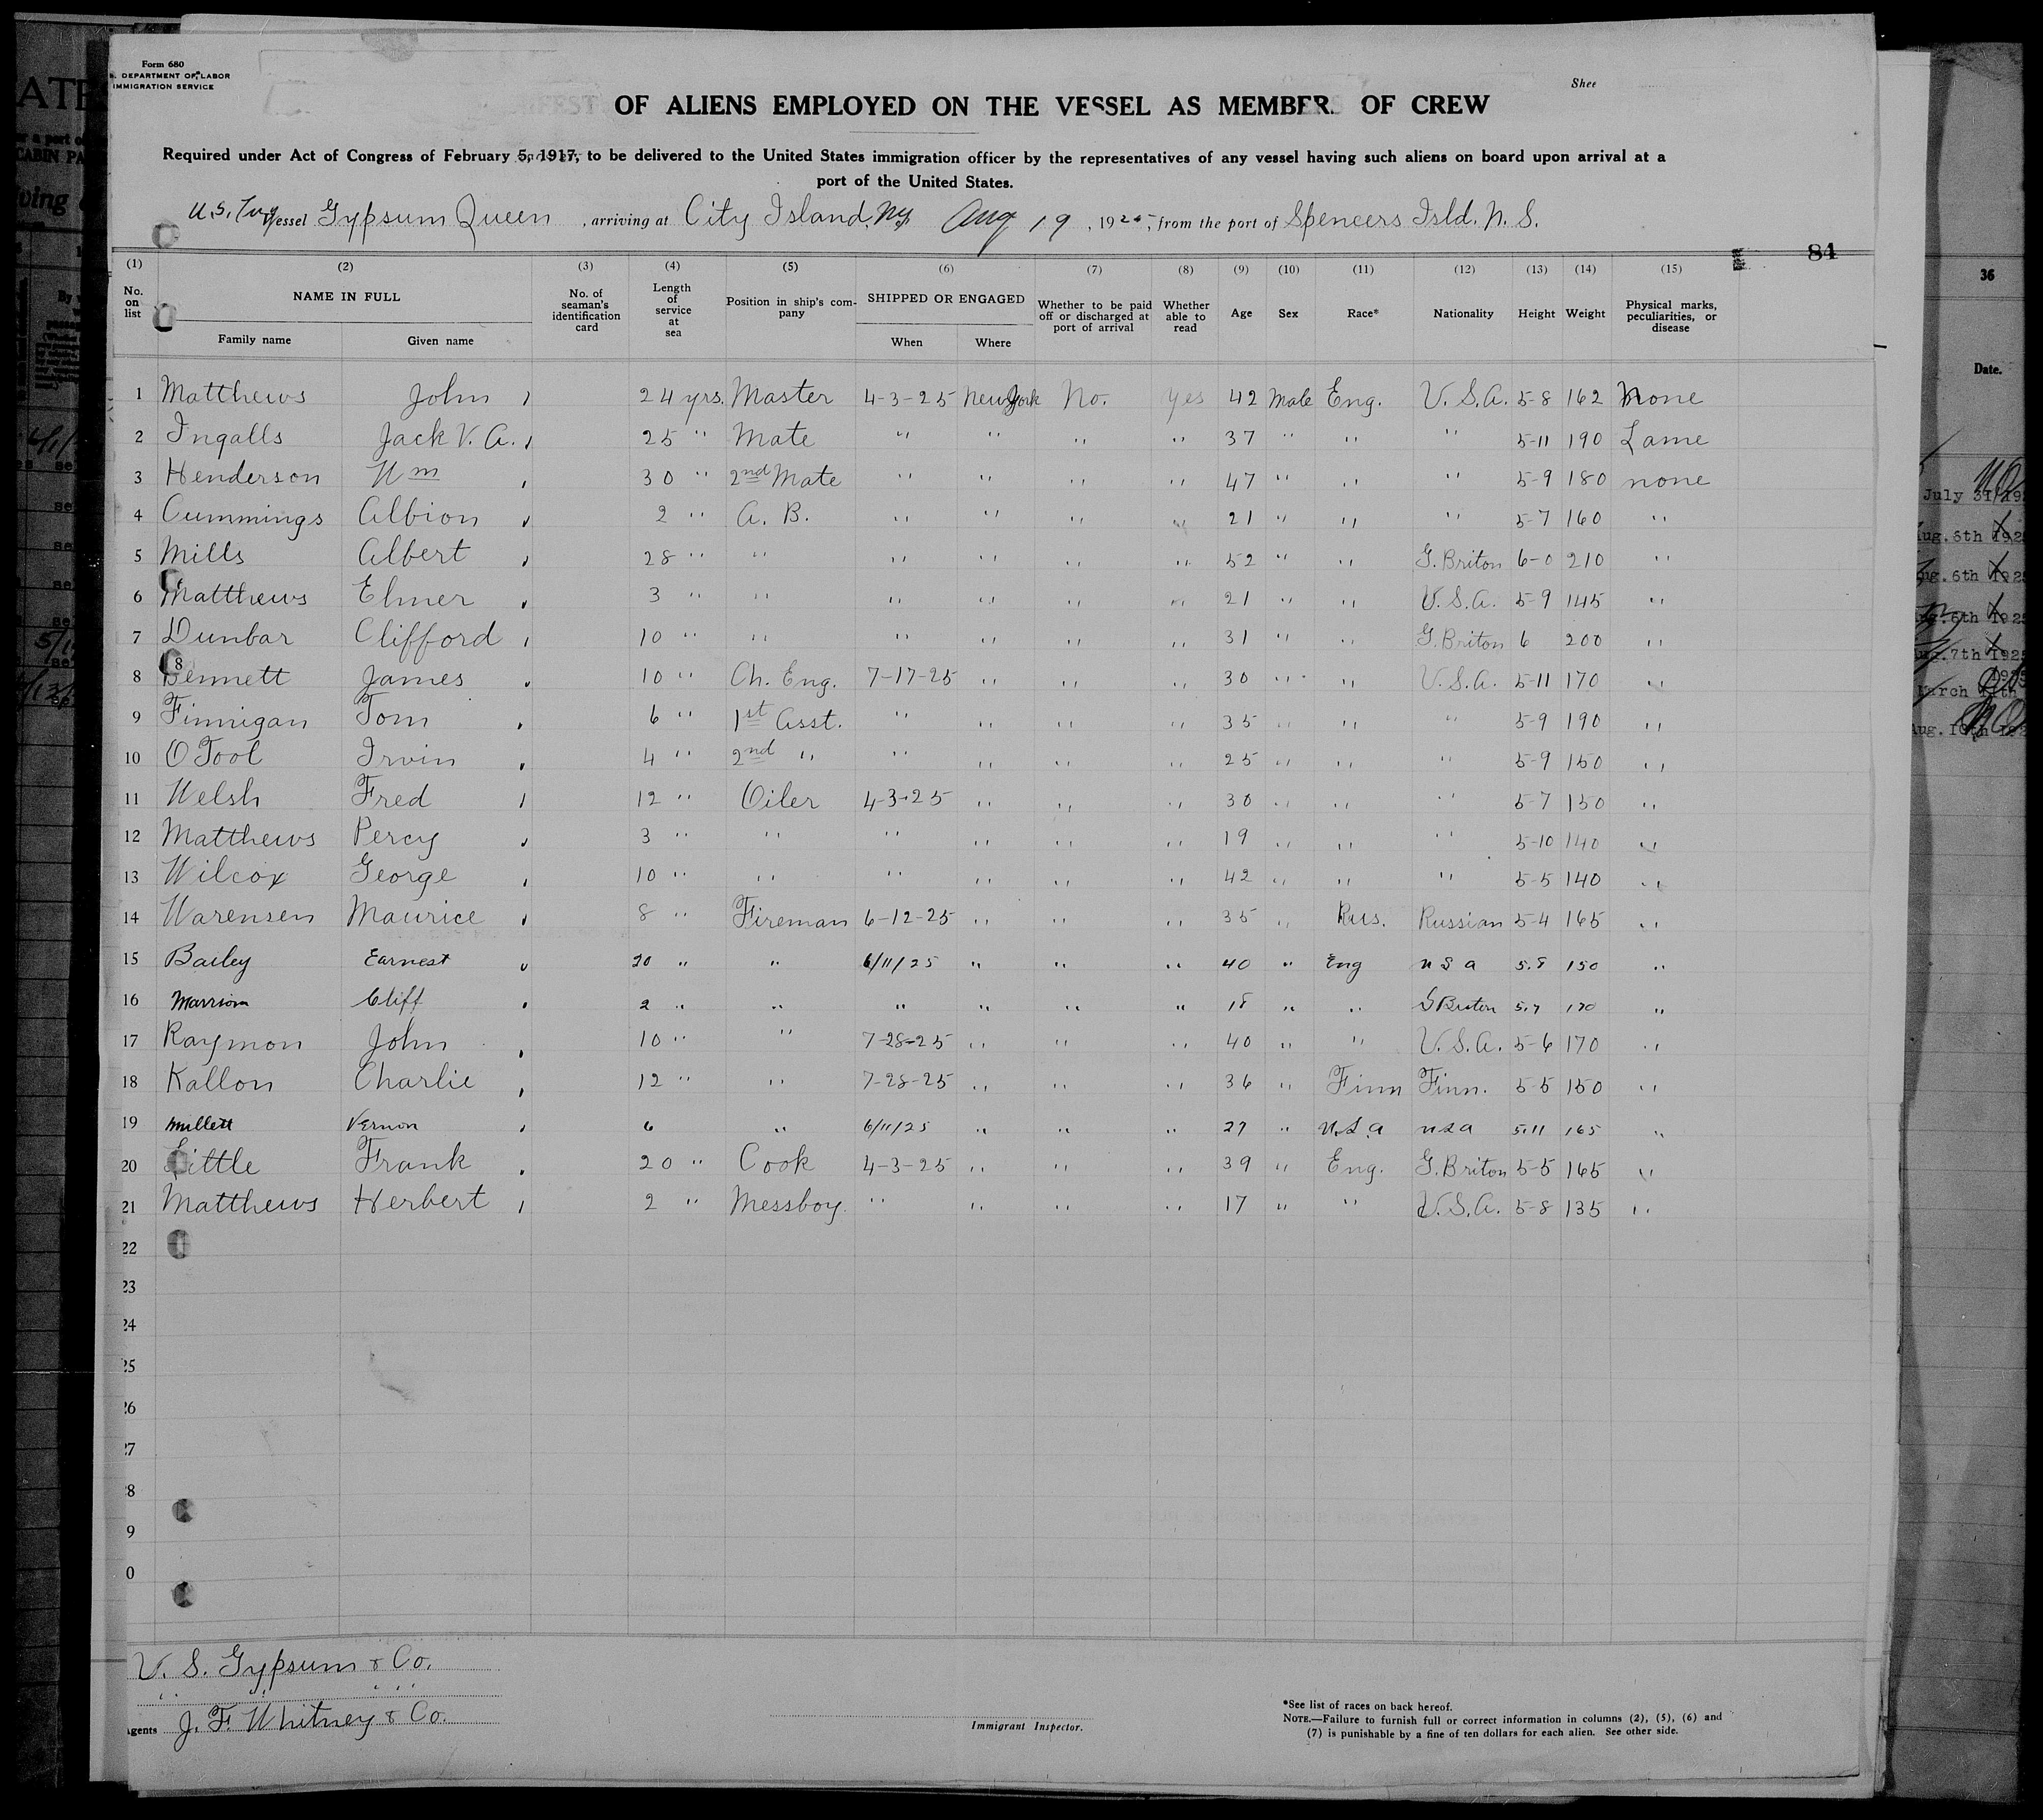 Form 680
DEPARTMENT OF LABOR
IMMIGRATION SERVICE
Shee
OF ALIENS EMPLOYED ON THE VESSEL AS MEMBER OF CREW
Required under Act of Congress of February 5, 1917, to be delivered to the United States immigration officer by the representatives of any vessel having such aliens on board upon arrival at a
port of the United States.
U.S. Tug Vessel Gypsum Queen, arriving at City Island, N.Y. Aug 19, 1925, from the port of Spencers Isld. N. S.
84
(1) (2) (3) (4) (5) (6) (7) (8) (9) (10) (11) (12) (13) (14) (15)
No. on list NAME IN FULL Family name Given name No. of seaman's identification card Length of service at sea Position in ship's company SHIPPED OR ENGAGED When Where Whether to be paid off or discharged at port of arrival Whether able to read Age Sex Race* Nationality Height Weight Physical marks, peculiarities, or disease
1 Matthews John 24 yrs. Master 4-3-25 New York No. Yes 42 Male Eng. U.S.A. 5-8 162 None
2 Ingalls Jack V. A. 25 " Mate " " " " 37 " " " 5-11 190 Lame
3 Henderson Wm 30 " 2nd Mate " " " " 47 " " " 5-9 180 none
4 Cummings Albion 2 " A. B. " " " " 21 " " " 5-7 160 "
5 Mills Albert 28 " " " " " " 52 " " G. Briton 6-0 210 "
6 Matthews Elmer 3 " " " " " " 21 " " U.S.A. 5-9 145 "
7 Dunbar Clifford 10 " " " " " " 31 " " G. Briton 6 200 "
8 Bennett James 10 " Ch. Eng. 7-17-25 " " " 30 " " U.S.A. 5-11 170 "
9 Finnigan Tom 6 " 1st Asst. " " " " 35 " " " 5-9 190 "
10 O'Tool Irvin 4 " 2nd " " " " " 25 " " " 5-9 150 "
11 Welsh Fred 12 " Oiler 4-3-25 " " " 30 " " " 5-7 150 "
12 Matthews Percy 3 " " " " " " 19 " " " 5-10 140 "
13 Wilcox George 10 " " " " " " 42 " " " 5-5 140 "
14 Warensen Maurice 8 " Fireman 6-12-25 " " " 35 " Rus. Russian 5-4 165 "
15 Bailey Earnest 20 " " 6/11/25 " " " 40 " Eng U S A 5.8 150 "
16 Cliff 2 " " " " " " 18 " " G Briton 5.7 170 "
17 Raymon John 10 " " 7-28-25 " " " 40 " " U.S.A. 5-6 170 "
18 Kallon Charlie 12 " " 7-28-25 " " " 36 " Finn Finn. 5-5 150 "
19 Millett Vernon 6 " 6/11/25 " " " 27 " U.S.A U S A 5.11 165 "
20 Little Frank 20 " Cook 4-3-25 " " " 39 " Eng. G. Briton 5-5 165 "
21 Matthews Herbert 2 " Messboy. " " " " 17 " " U.S.A. 5-8 135 "
22
23
24
25
26
27
8
9
0
U. S. Gypsum & Co.
" " " "
Agents J. F. Whitney & Co.
Immigrant Inspector.
*See list of races on back hereof.
NOTE.—Failure to furnish full or correct information in columns (2), (5), (6) and
(7) is punishable by a fine of ten dollars for each alien. See other side.
36
Date.
July 31/19
Aug. 6th 192
Aug. 6th 192
Aug. 6th 192
Aug. 7th 192
March 11th
Aug. 10th 192